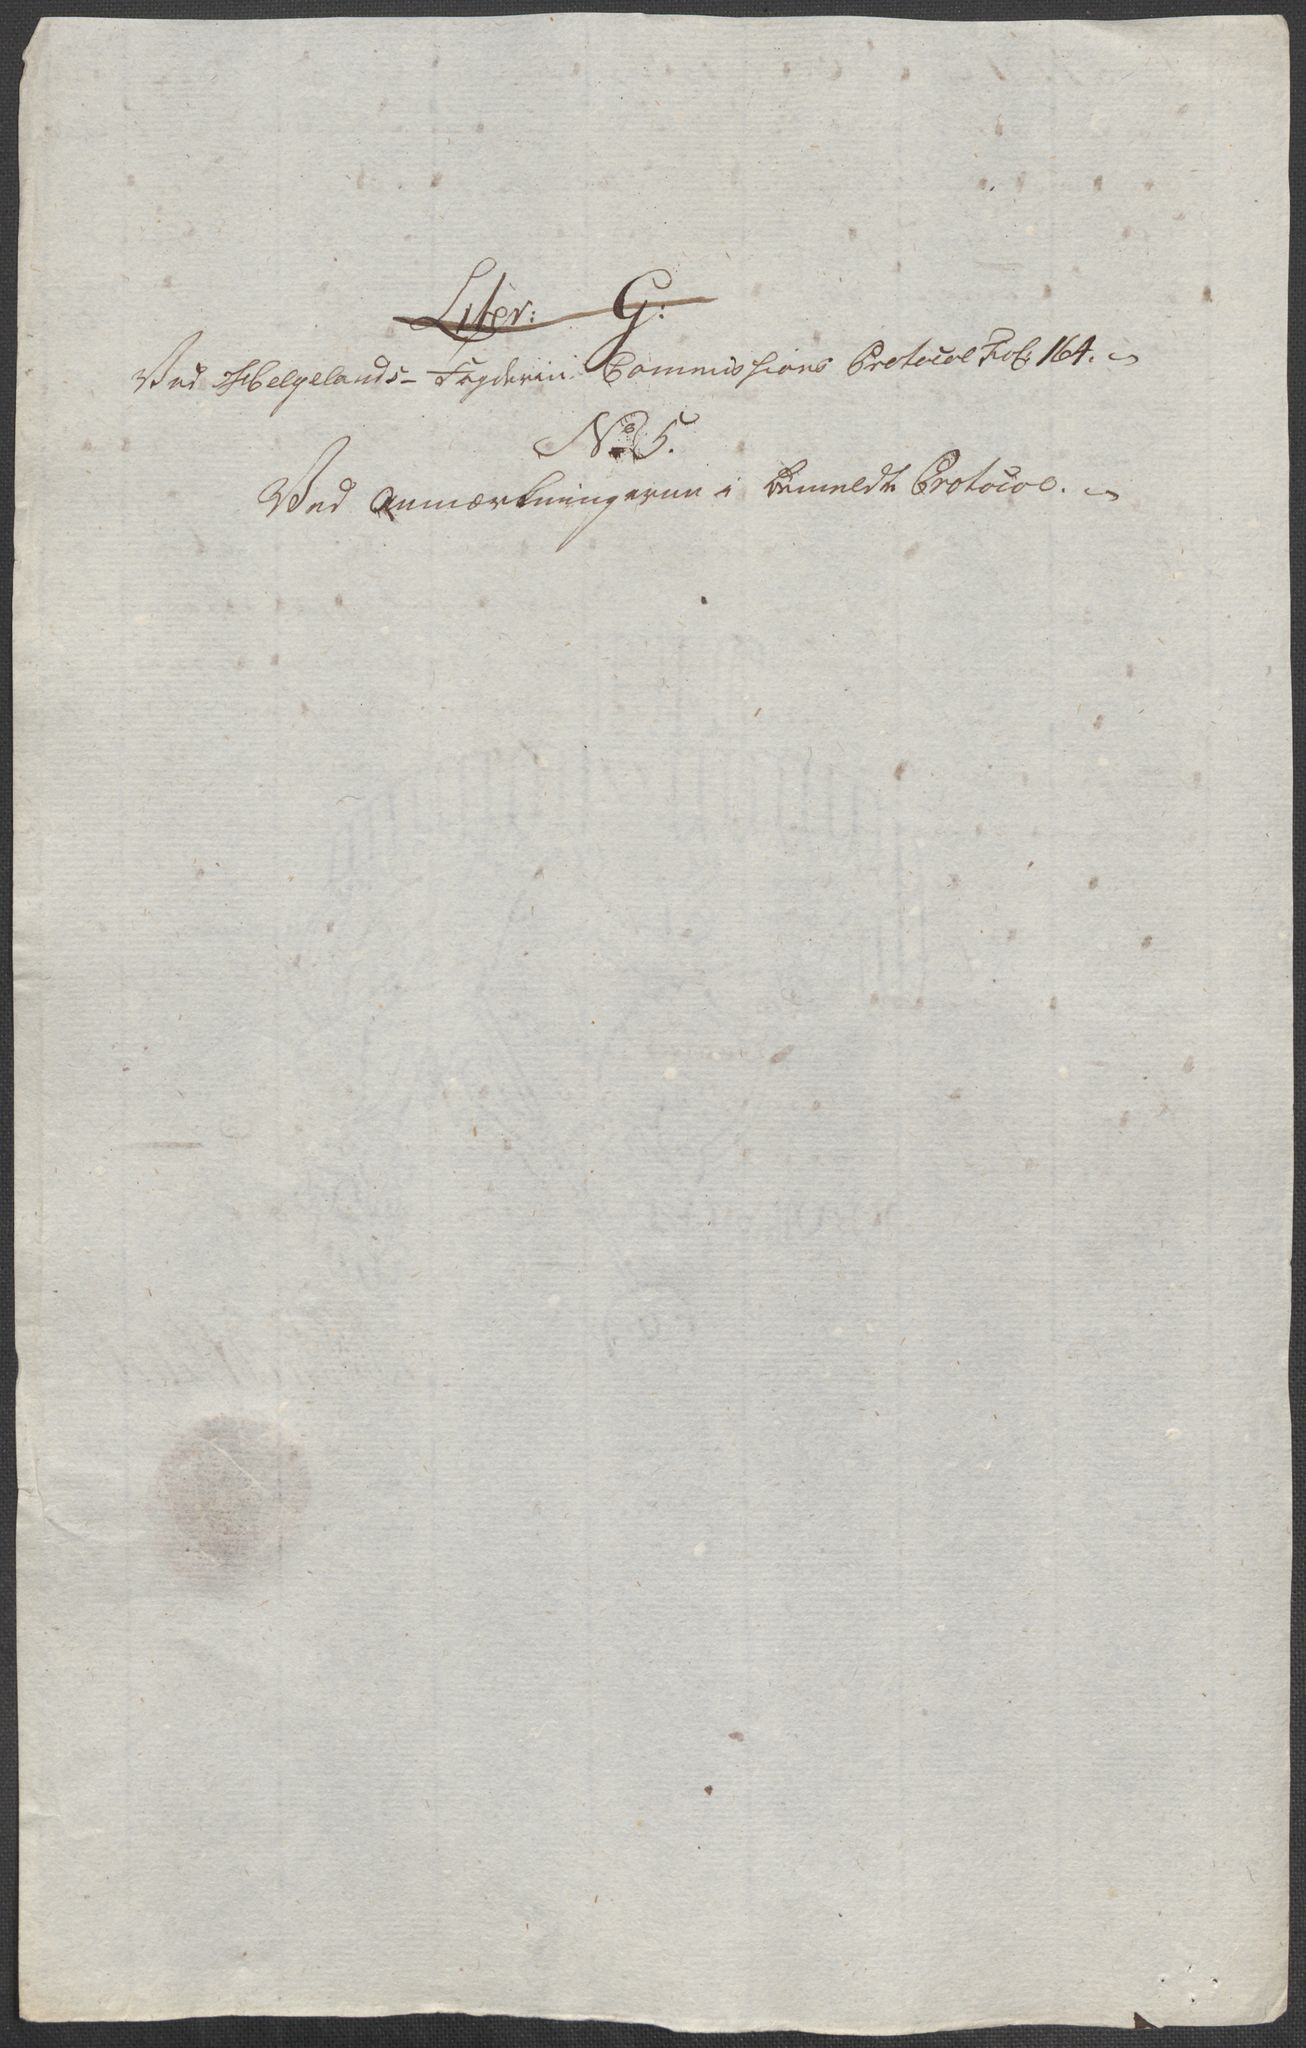 Liter: G:
Ved Helgelands- Fogderiis Commissions Protocol Fol: 164.
No 5.
Ved Anmærkningerne i bemeldte Protocol.